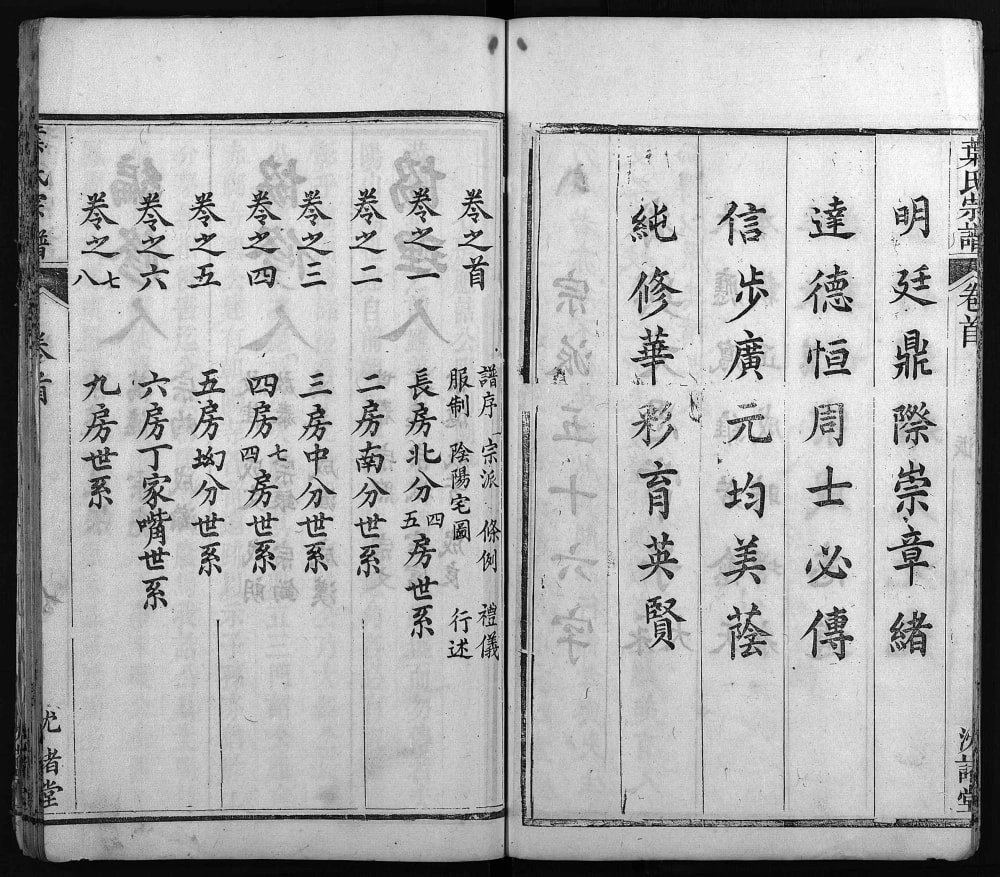 葉氏宗譜
卷首
明廷鼎際崇章緒
達德恒周士必傳
信步廣元均美蔭
純修華彩育英賢
卷之首 譜序 宗派 條例 禮儀
服制 陰陽宅圖 行述
卷之一 長房北分四五房世系
卷之二 二房南分世系
卷之三 三房中分世系
卷之四 四房七四房世系
卷之五 五房坳分世系
卷之六 六房丁家嘴世系
卷之七八 九房世系
氏宗譜
卷首
堂